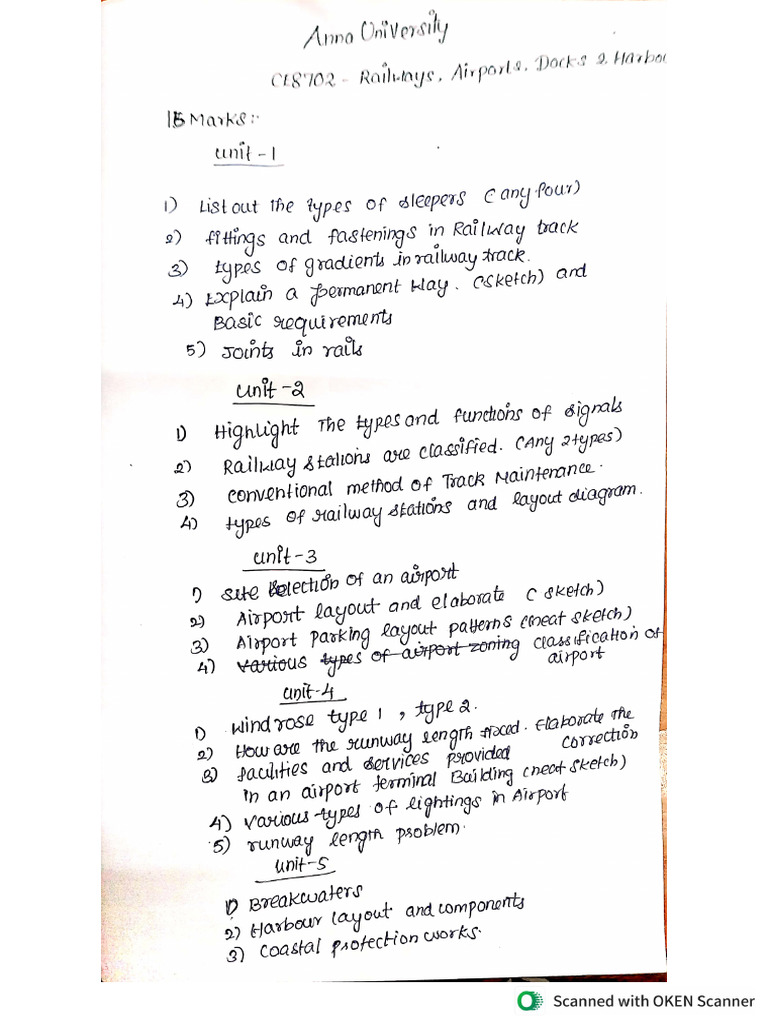 Anna University
CE8702 - Railways, Airports, Docks & Harbou
15 Marks:-
Unit - 1
1) List out the types of sleepers (any four)
2) fittings and fastenings in Railway track
3) types of gradients in railway track.
4) Explain a permanent way. (sketch) and
Basic requirements
5) Joints in rails
Unit - 2
1) Highlight The types and functions of signals
2) Railway stations are classified. (Any 2 types)
3) conventional method of Track Maintenance.
4) types of railway stations and layout diagram.
Unit - 3
1) Site selection of an airport
2) Airport layout and elaborate (sketch)
3) Airport parking layout patterns (neat sketch)
4) various types of airport zoning classification of
airport
Unit - 4
1) Wind rose type 1, type 2.
2) How are the runway length fixed. Elaborate the
correction
3) facilities and services provided
in an airport terminal Building (neat sketch)
4) various types of lightings in Airport
5) runway length problem.
Unit - 5
1) Breakwaters
2) Harbour layout and components
3) coastal protection works.
Scanned with OKEN Scanner